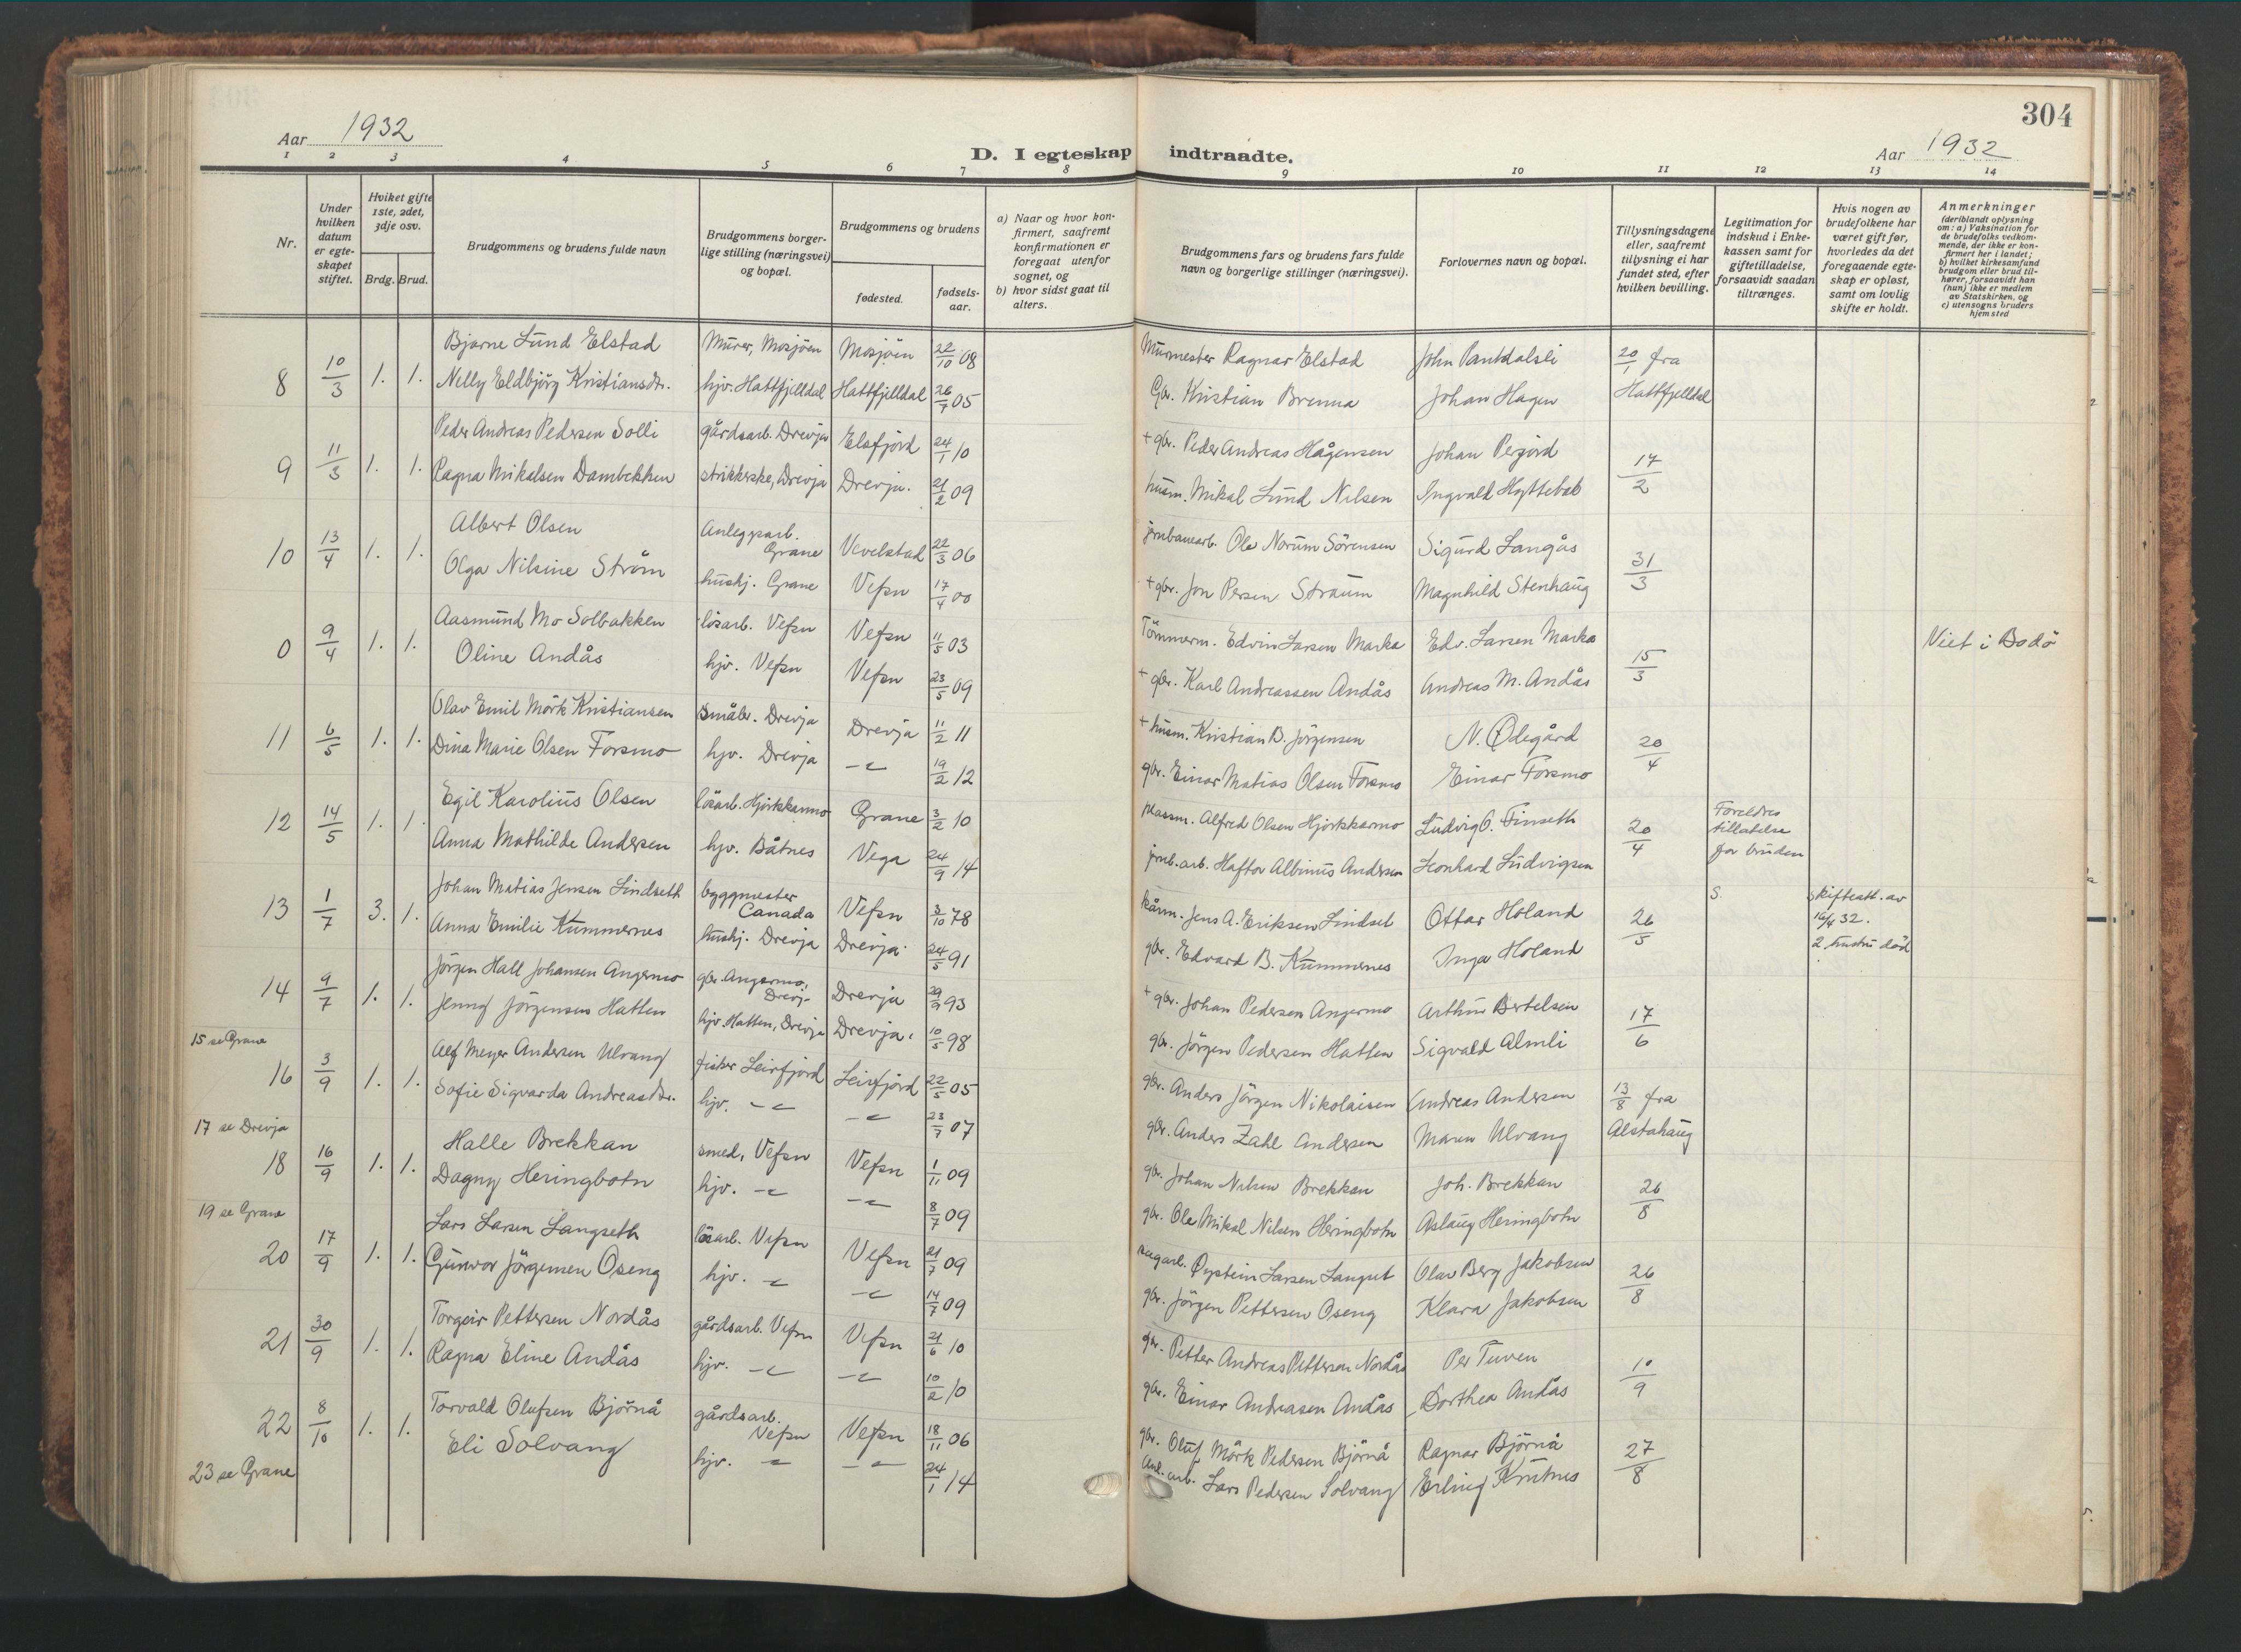 304
Aar 1932
D. I egteskap indtraadte.
Aar 1932
1 2 3 4 5 6 7 8 9 10 11 12 13 14
Nr.
Under hvilken datum er egte-skapet stiftet.
Hviket gifte 1ste, 2det, 3dje osv.
Brdg. Brud.
Brudgommens og brudens fulde navn
Brudgommens borger-lige stilling (næringsvei) og bopæl.
Brudgommens og brudens
fødested.
fødsels-aar.
a) Naar og hvor kon-firmert, saafremt konfirmationen er foregaat utenfor sognet, og
b) hvor sidst gaat til alters.
Brudgommens fars og brudens fars fulde navn og borgerlige stillinger (næringsvei).
Forlovernes navn og bopæl.
Tillysningsdagene eller, saafremt tillysning ei har fundet sted, efter hvilken bevilling.
Legitimation for indskud i Enke-kassen samt for giftetilladelse, forsaavidt saadan tiltrænges.
Hvis nogen av brudefolkene har været gift før, hvorledes da det foregaaende egte-skap er opløst, samt om lovlig skifte er holdt.
Anmerkninger (deriblandt oplysning om: a) Vaksination for de brudefolks vedkom-mende, der ikke er kon-firmert her i landet; b) hvilket kirkesamfund brudgom eller brud til-hører, forsaavidt han (hun) ikke er medlem av Statskirken, og c) utensogns bruders hjemsted
8 10/3 1. 1. Bjarne Lund Elstad Murer, Mosjöen Mosjöen 22/10 08 Murmester Ragnar Elstad John 20/1 fra
Nelly Eldbjörg Kristiansdtr. hjv. Hattfjelldal Hattfjelldal 26/7 05 Gbr. Kristian Brenna Johan Hagen Hattfjelldal
9 11/3 1. 1. Peder Andreas Pedersen Solli gårdsarb. Drevja Elsfjord 24/1 10 + gbr. Peder Andreas Hågensen Johan Pergård 17/2
Ragna Mikalsen Dambekken strikkerske, Drevja Drevja. 21/2 09 husm. Mikal Lund Nilsen Ingvald
10 13/4 1. 1. Albert Olsen Anleggsarb. Grane Vevelstad 22/3 06 jernbanearb. Ole Norum Sörensen Sigurd Langås 31/3
Olga Nilsine Ström hushj. Grane Vefsn 17/4 00 + gbr. Jon Persen Straum Magnhild Stenhaug
0 9/4 1. 1. Aasmund Mo Solbakken lösarb. Vefsn Vefsn 11/5 03 Tömmerm. Edvin Larsen Marka Edv. Larsen Marka 15/3 Viet i Bodö
Oline Andås hjv. Vefsn Vefsn 23/5 09 + gbr. Karl Andreassen Andås Andreas M. Andås
11 6/5 1. 1. Olav Emil Mörk Kristiansen småbr. Drevja Drevja 11/2 11 + husm. Kristian B. Jörgensen N. Ödegård 20/4
Dina Marie Olsen Forsmo hjv. Drevja -"- 19/2 12 gbr. Einar Matias Olsen Forsmo Einar Forsmo
12 14/5 1. 1. Egil Karolius Olsen lösarb. Hjortkarmo Grane 3/2 10 Alfred Olsen Hjortkarmo Ludvig O. Finseth 20/4 Foreldres tillatelse for bruden
Anna Mathilde Andersen hjv. Båtnes Vega 24/9 14 jernb.arb. Haftor Albinus Andersen Leonhard Ludvigsen
13 1/7 3. 1. Johan Matias Jensen Lindseth byggmester Canada Vefsn 3/10 78 kårm. Jens A. Eriksen Lindset Ottar Höland 26/5 S. skifteatt. av 16/4 32. 2. hustru död
Anna Emilie Kummernes hushj. Drevja Drevja 24/5 91 gbr. Edvard B. Kummernes Inga Höland
14 9/7 1. 1. Jörgen Hall Johansen Angermo gbr. Angermo, Drevj- Drevja 29/9 93 + gbr. Johan Pedersen Angermo Arthur Bertelsen 17/6
Jenny Jörgensen Hatten hjv. Hatten, Drevja Drevja. 10/5 98 gbr. Jörgen Pedersen Hatten Sigvald Almli
15 se Grane
16 3/9 1. 1. Alf Meyer Andersen Ulvang fisker Leirfjord Leirfjord 22/5 05 gbr. Anders Jörgen Nikolaisen Andreas Andersen 13/8 fra
Sofie Sigvarda Andreasdtr. hjv. -"- -"- 23/7 07 gbr. Anders Zahl Andersen Maren Ulvang Alstahaug
17 se Drevja
18 16/9 1. 1. Halle Brekkan smed, Vefsn Vefsn 1/11 09 gbr. Johan Nilsen Brekkan Joh. Brekkan 26/8
Dagny Heringbotn hjv. -"- -"- 8/7 09 gbr. Ole Mikal Nilsen Heringbotn Aslaug Heringbotn
19 se Grane
20 17/9 1. 1. Lars Larsen Langseth lösarb. Vefsn Vefsn 21/7 09 sagarb. Öystein Larsen Langset Olav Berg Jakobsen 26/8
Gunvor Jörgensen Oseng hjv. -"- -"- 14/7 09 gbr. Jörgen Pettersen Oseng Klara Jakobsen
21 30/9 1. 1. Torgeir Pettersen Nordås gårdsarb. Vefsn Vefsn 21/6 10 gbr. Petter Andreas Pettersen Nordås Per Tuven 10/9
Ragna Eline Andås hjv. -"- -"- 10/2 10 gbr. Einar Andreasen Andås Dorthea Andås
22 8/10 1. 1. Torvald Olufsen Björnå gårdsarb. Vefsn Vefsn 18/11 06 gbr. Oluf Mörk Pedersen Björnå Ragnar Björnå 27/8
Eli Solvang hjv. -"- -"- 24/1 14 Anl.arb. Lars Pedersen Solvang Erling Krutnes
23 se Grane